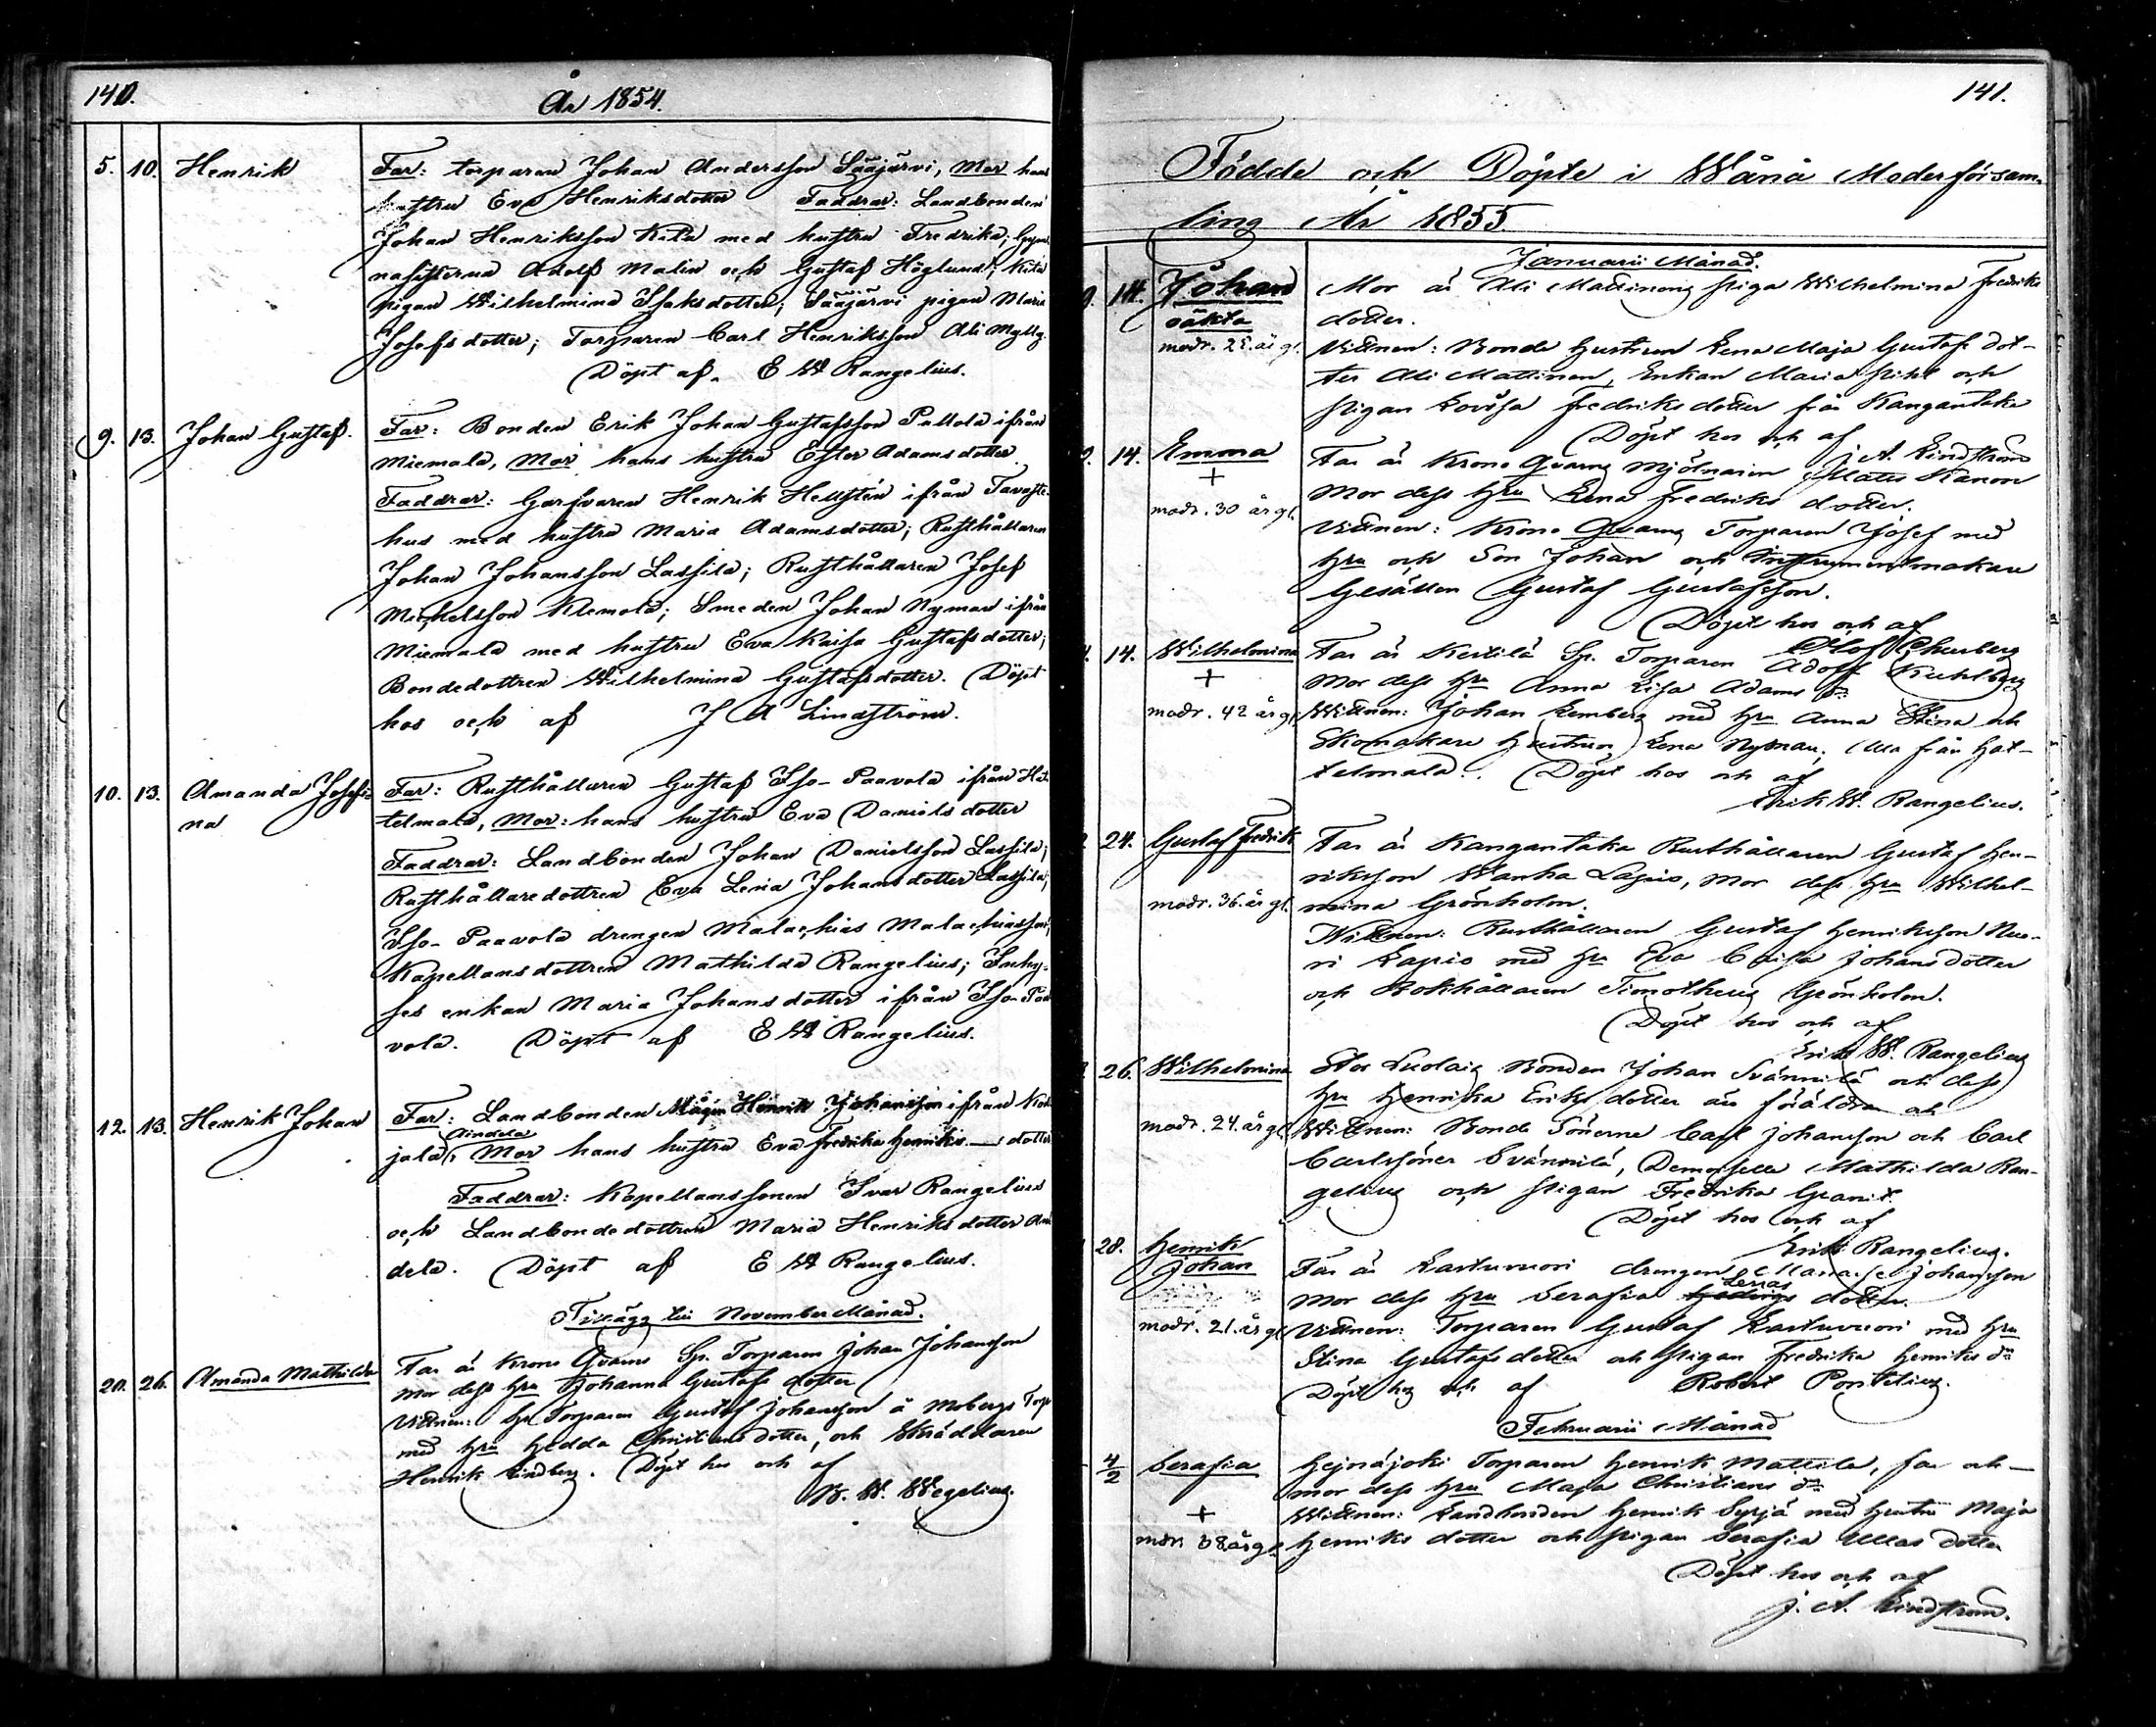 140.
År 1854.
5. 10. Henrik
Far: torparen Johan Andersson Sääjärvi, Mor hans
hustru Eva Henriksdotter Faddrar: Landbonden
Johan Henriksson Kila med hustru Fredrika; Gym-
nasisterna Adolf Malin och Gustaf Höglund; Kila
pigan Wilhelmina Isaksdotter; Sääjärvi pigan Maria
Josefsdotter; Torparen Carl Henriksson Ali Mylly.
Döpt af. E W Rangelius.
9. 13. Johan Gustaf.
Far: Bonden Erik Johan Gustafsson Pallola ifrån
Miemala, Mor hans hustru Ester Adamsdotter
Faddrar: Garfvaren Henrik Hellstén ifrån Tavaste-
hus med hustru Maria Adamsdotter; Rusthållaren
Johan Johansson Lassila; Rusthållaren Josef
Michelsson Klemola; Smeden Johan Nyman ifrån
Miemala med hustru Eva Kaisa Gustafsdotter;
Bondedottren Wilhelmina Gustafsdotter. Döpt
hos och af J A Lindström.
10. 13. Amanda Josefi-
na
Far: Rusthållaren Gustaf Iso-Paavola ifrån Hä-
telmala, Mor: hans hustru Eva Danielsdotter
Faddrar: Landbonden Johan Danielsson Lassila;
Rusthållaredottren Eva Lena Johansdotter Lassila;
Iso-Paavola drengen Malachias Malachiasson;
Kapellansdottren Mathilda Rangelius; Inhy-
ses enkan Maria Johansdotter ifrån Iso-Paa-
vola. Döpt af E W Rangelius.
12. 13. Henrik Johan
Far: Landbonden Mågen Henrik Johansson ifrån Kok-
Aindela
jala, Mor hans hustru Eva Fredrika Henriks dotter
Faddrar: Kapellanssonen Ivar Rangelius
och Landbondedottren Maria Henriksdotter Ain-
dela. Döpt af E W Rangelius.
Tillägg till November Månad.
20. 26. Amanda Mathilda
Far är Krono Qvarns Sp. Torparen Johan Johansson
Mor dess hru Johanna Gustafs dotter
Vittnen: Sp Torparen Gustaf Johansson å Mobergs Torp
med hru Hedda Christians dotter, och Skräddaren
Henrik Lindberg. Döpt hos och af
W. Wegelius.
141.
Födde och Döpte i Wånå Moderförsam-
ling År 1855
Januarii Månad.
14. Johan
oäkta
modr. år gl.
Mor är Ali Mattinens piga Wilhelmina Fredriks
dotter.
Vittnen: Bonde hustrun Lena Maja Gustafs dot-
ter Ali Mattinen, Enkan Maria och
pigan Lovisa Fredriksdotter från Kangantaka
Döpt hos och af
J A Lindström
14. Emma
+
modr. 30 år gl.
Far är Krono Qvarns Mjölnaren Matts Kanon
Mor dess hru Lena Fredriks dotter.
Vittnen: Krono Qvarns Torparen Josef med
hru och Son Johan och Instrumentmakare
Gesällen Gustaf Gustafsson.
Döpt hos och af
14. Wilhelmina
+
modr. 42 år gl.
Far är Kestilä Sp. Torparen Adolf Kuhlberg
Mor dess hru Anna Lisa Adams dr
Vittnen: Johan Lemberg med hru Anna Stina och
Skomakare hustrun Lena Nyman, alla från Hät-
telmala. Döpt hos och af
Erik W. Rangelius.
24. Gustaf Fredrik
modr. 36. år gl.
Far är Kangantaka Rusthållaren Gustaf Hen-
riksson Wanha Lapio, Mor dess hru Wilhel-
mina Grönholm.
Vittnen: Rusthållaren Gustaf Henriksson Nuo-
ri Lapio med hru Eva Caisa Johansdotter
och Bokhållaren Timotheus Grönholm.
Döpt hos och af
Erik W. Rangelius
26. Wilhelmina
modr. 24. år gl.
Stor Luolais Bonden Johan Svännilä och dess
hru Henrika Eriks dotter äro föräldrar och
Vittnen: Bonde Sönerne Carl Johansson och Carl
Carlssöner Svännilä, Demoiselle Mathilda Ran-
gelius och pigan Fredrika Granit.
Döpt hos och af
Erik Rangelius.
28. Henrik
Johan
modr. 21. år gl.
Far är Kartuvuori drengen Manasse Johansson
Mor dess hru Serafia Lenas dotter.
Vittnen: Torparen Gustaf Kartuvuori med hru
Stina Gustafsdotter och pigan Fredrika Henriks dr
Döpt hos och af Robert
Februarii Månad
4/2 Serafia
+
modr 38 år gl.
Hejnäjoki Torparen Henrik Mattila, far och
mor dess hru Maja Christians dr
Vittnen: Landbonden Henrik Syrjä med hustru Maja
Henriks dotter och pigan Serafia Ullas dotter
Döpt hos och af
J. A. Lindström.